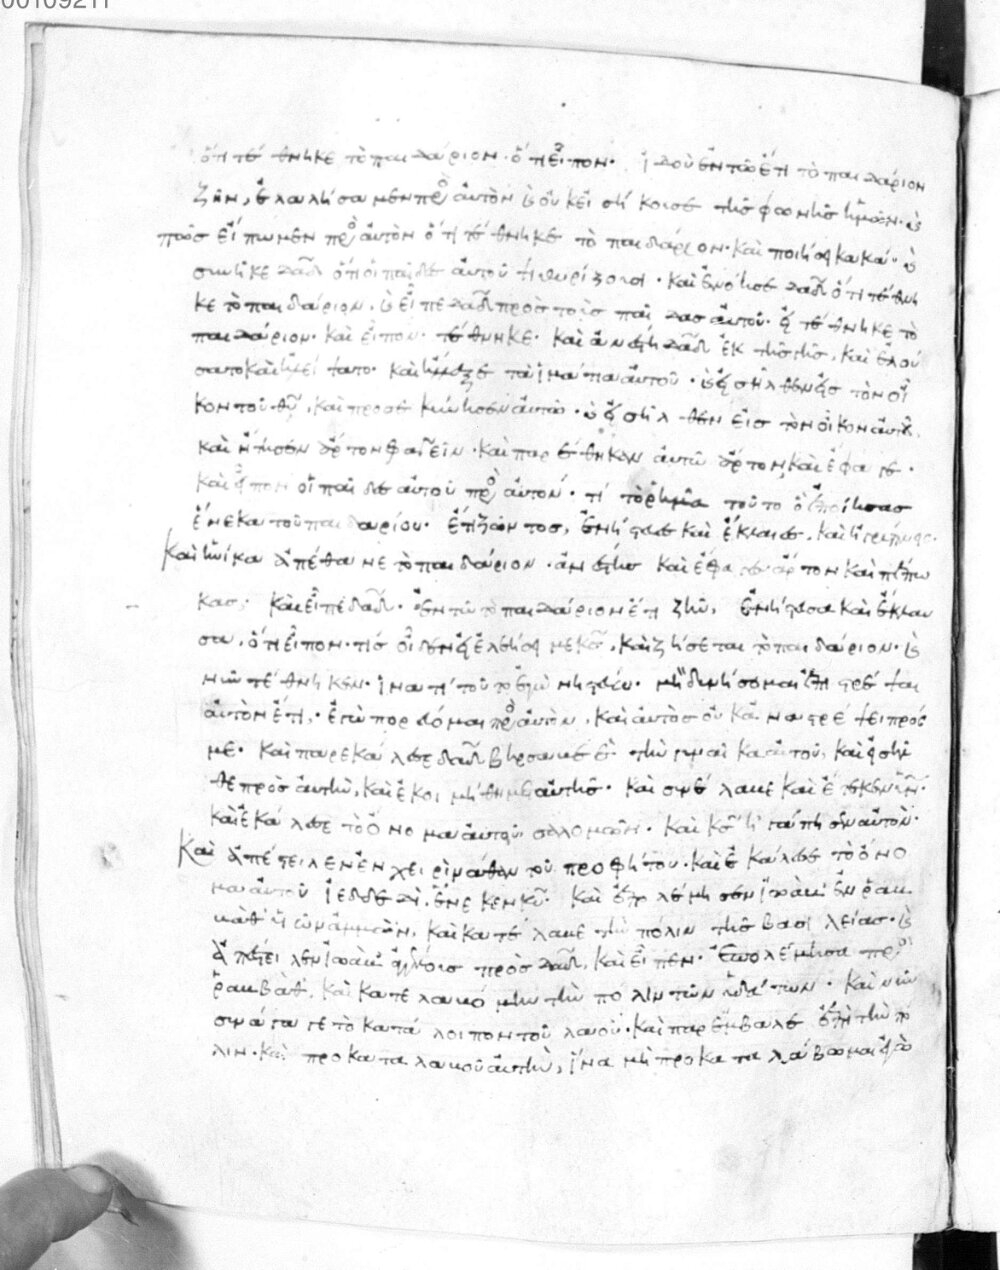 00109211
ὅτι τέθνηκε τὸ παιδάριον· ὅτι εἶπον· ἰδοὺ ἐν τῶ ἔτι τὸ παιδάριον
ζῆν, ἐλαλήσαμεν πρὸς αὐτὸν καὶ οὐκ εἰσήκουσε τῆς φωνῆς ἡμῶν· καὶ
πῶς εἴπωμεν πρὸς αὐτὸν ὅτι τέθνηκε τὸ παιδάριον· καὶ ποιήσει κακά· καὶ
συνῆκε δαδ ὅτι οἱ παῖδες αὐτοῦ ψιθυρίζουσι· καὶ ἐνόησε δαδ ὅτι τέθνη
κε τὸ παιδάριον, καὶ εἶπε δαδ πρὸς τοὺς παῖδας αὐτοῦ· εἰ τέθνηκε τὸ
παιδάριον· καὶ εἶπον· τέθνηκε· καὶ ἀνέστη δαδ ἐκ τῆς γῆς, καὶ ἐλού
σατο καὶ ἠλείψατο· καὶ ἤλλαξε τὰ ἱμάτια αὐτοῦ· καὶ εἰσῆλθεν εἰς τὸν οἶ
κον τοῦ θυ, καὶ προσεκύνησεν αὐτῶ· καὶ εἰσῆλθεν εἰς τὸν οἶκον αὐτοῦ,
καὶ ἤτησεν ἄρτον φαγεῖν· καὶ παρέθηκαν αὐτῶ ἄρτον, καὶ ἔφαγε·
καὶ εἶπον οἱ παῖδες αὐτοῦ πρὸς αὐτόν· τί τὸ ῥῆμα τοῦτο ὃ ἐποίησας
ἕνεκα τοῦ παιδαρίου· ἔτι ζῶντος, ἐνήστευες καὶ ἔκλαιες, καὶ ἠγρύπνεις·
Καὶ ἡνίκα ἀπέθανε τὸ παιδάριον· ἀνέστης καὶ ἔφαγες ἄρτον καὶ πέπω
κας; καὶ εἶπε δαδ· ἐν τῶ τὸ παιδάριον ἔτι ζῆν, ἐνήστευσα καὶ ἔκλαυ
σα, ὅτι εἶπον· τίς οἶδεν εἰ ἐλεήσει με κς, καὶ ζήσεται τὸ παιδάριον· καὶ
νῦν τέθνηκεν· ἵνα τί τοῦτο ἐγὼ νηστεύω· μὴ δυνήσομαι ἐπιστρέψαι
αὐτὸν ἔτι· ἐγὼ πορεύσομαι πρὸς αὐτὸν, καὶ αὐτὸς οὐκ ἀναστρέψει πρός
με· καὶ παρεκάλεσε δαδ βηρσαβεὲ τὴν γυναῖκα αὐτοῦ, καὶ εἰσῆλ
θε πρὸς αὐτὴν, καὶ ἐκοιμήθη μετ' αὐτῆς· καὶ συνέλαβε καὶ ἔτεκεν υἱόν·
καὶ ἐκάλεσε τὸ ὄνομα αὐτοῦ σολομών· καὶ κς ἠγάπησεν αὐτὸν·
Καὶ ἀπέστειλεν ἐν χειρὶ νάθαν τοῦ προφήτου· καὶ ἐκάλεσε τὸ ὄνο
μα αὐτοῦ ἰεδδεδὶ, ἕνεκεν κυ· καὶ ἐπολέμησεν ἰωὰβ ἐν ῥαβ
βὰθ υἱῶν ἀμμὼν, καὶ κατέλαβε τὴν πόλιν τῆς βασιλείας· καὶ
ἀπέστειλεν ἰωὰβ ἀγγέλους πρὸς δαδ, καὶ εἶπεν· ἐπολέμησα πρὸς
ῥαββὰθ, καὶ κατελαβόμην τὴν πόλιν τῶν ὑδάτων· καὶ νῦν
συνάγαγε τὸ κατάλοιπον τοῦ λαοῦ· καὶ παρέμβαλε ἐπὶ τὴν πό
λιν· καὶ προκαταλαβοῦ αὐτὴν, ἵνα μὴ προκαταλάβωμαι ἐγὼ